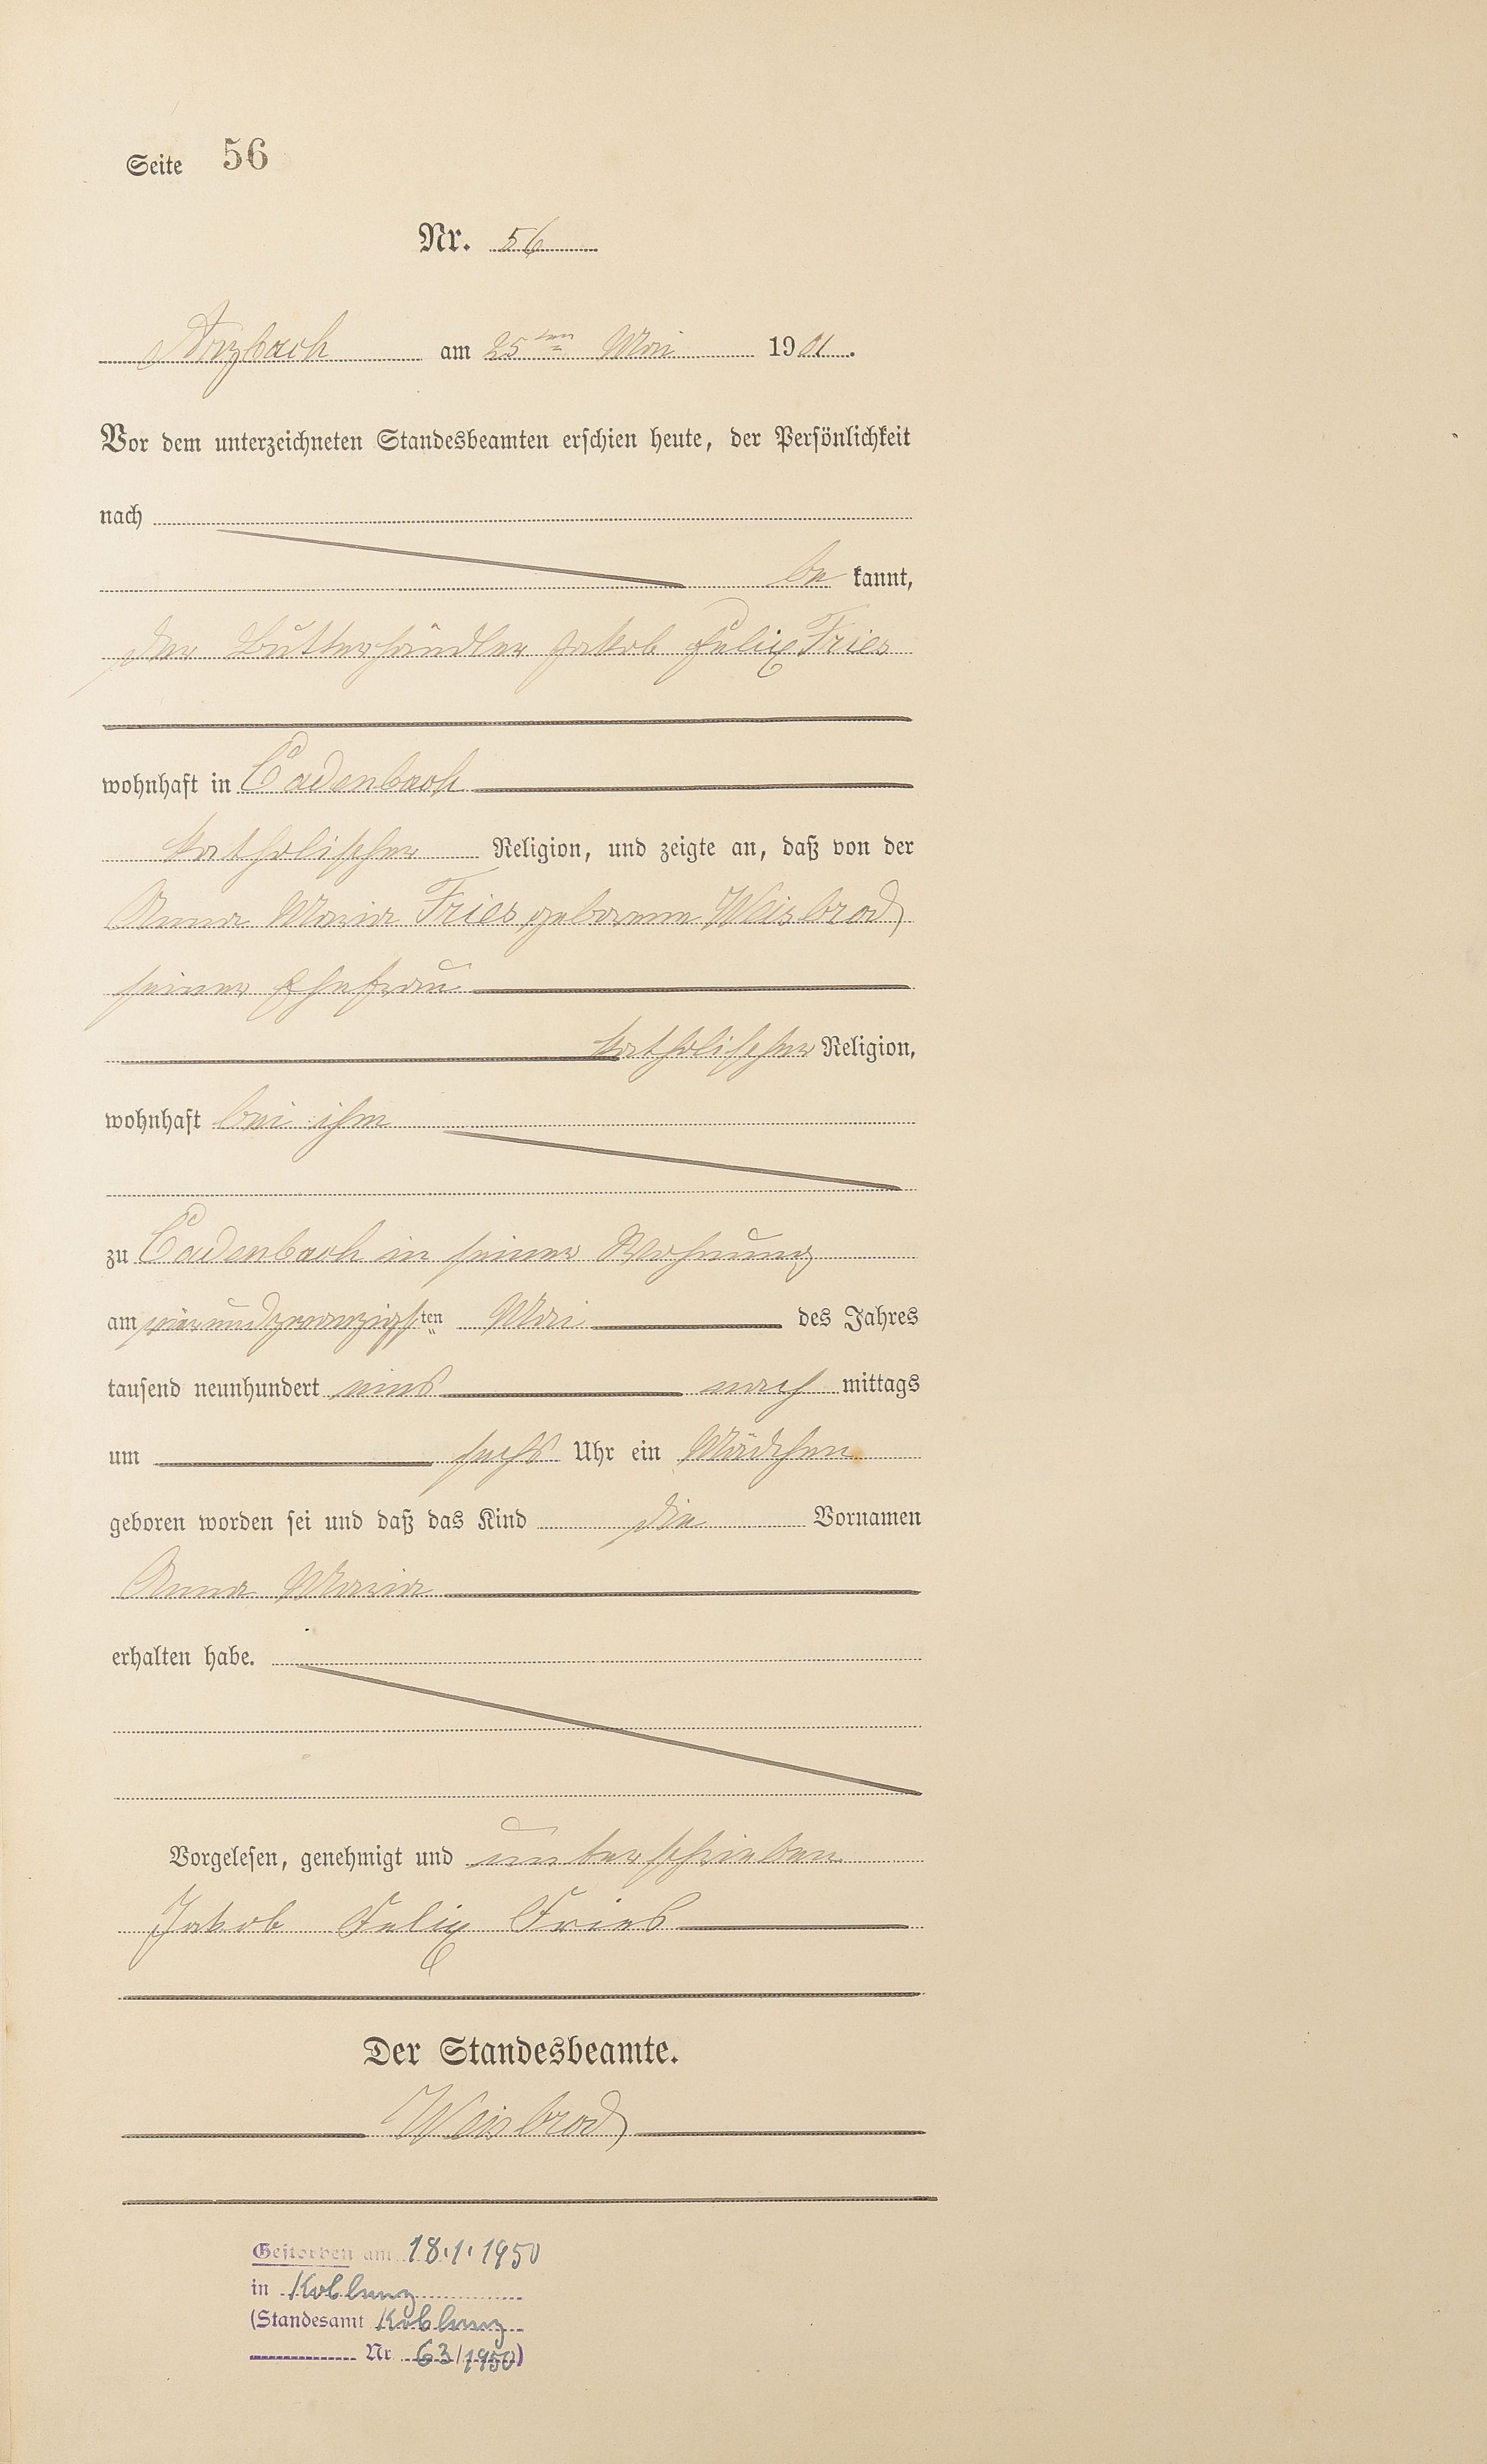 Seite 56
Nr. 56
Arzbach am 25ten Mai 1901.
Vor dem unterzeichneten Standesbeamten erschien heute, der Persönlichkeit
nach
be kannt,
der Butterhändler Jakob Felix Fries
wohnhaft in Cadenbach
katholischer Religion, und zeigte an, daß von der
Anna Maria Fries geborenen Weisbrod
seiner Ehefrau
katholischer Religion,
wohnhaft bei ihm
zu Cadenbach in seiner Wohnung
am vierundzwanzigsten Mai des Jahres
tausend neunhundert eins nach mittags
um sechs Uhr ein Mädchen
geboren worden sei und daß das Kind die Vornamen
Anna Maria
erhalten habe.
Vorgelesen, genehmigt und unterschrieben
Jakob Felix Fries
Der Standesbeamte.
Weisbrod
Gestorben am 18.1.1950
in Koblenz
(Standesamt Koblenz
Nr 63/1950)